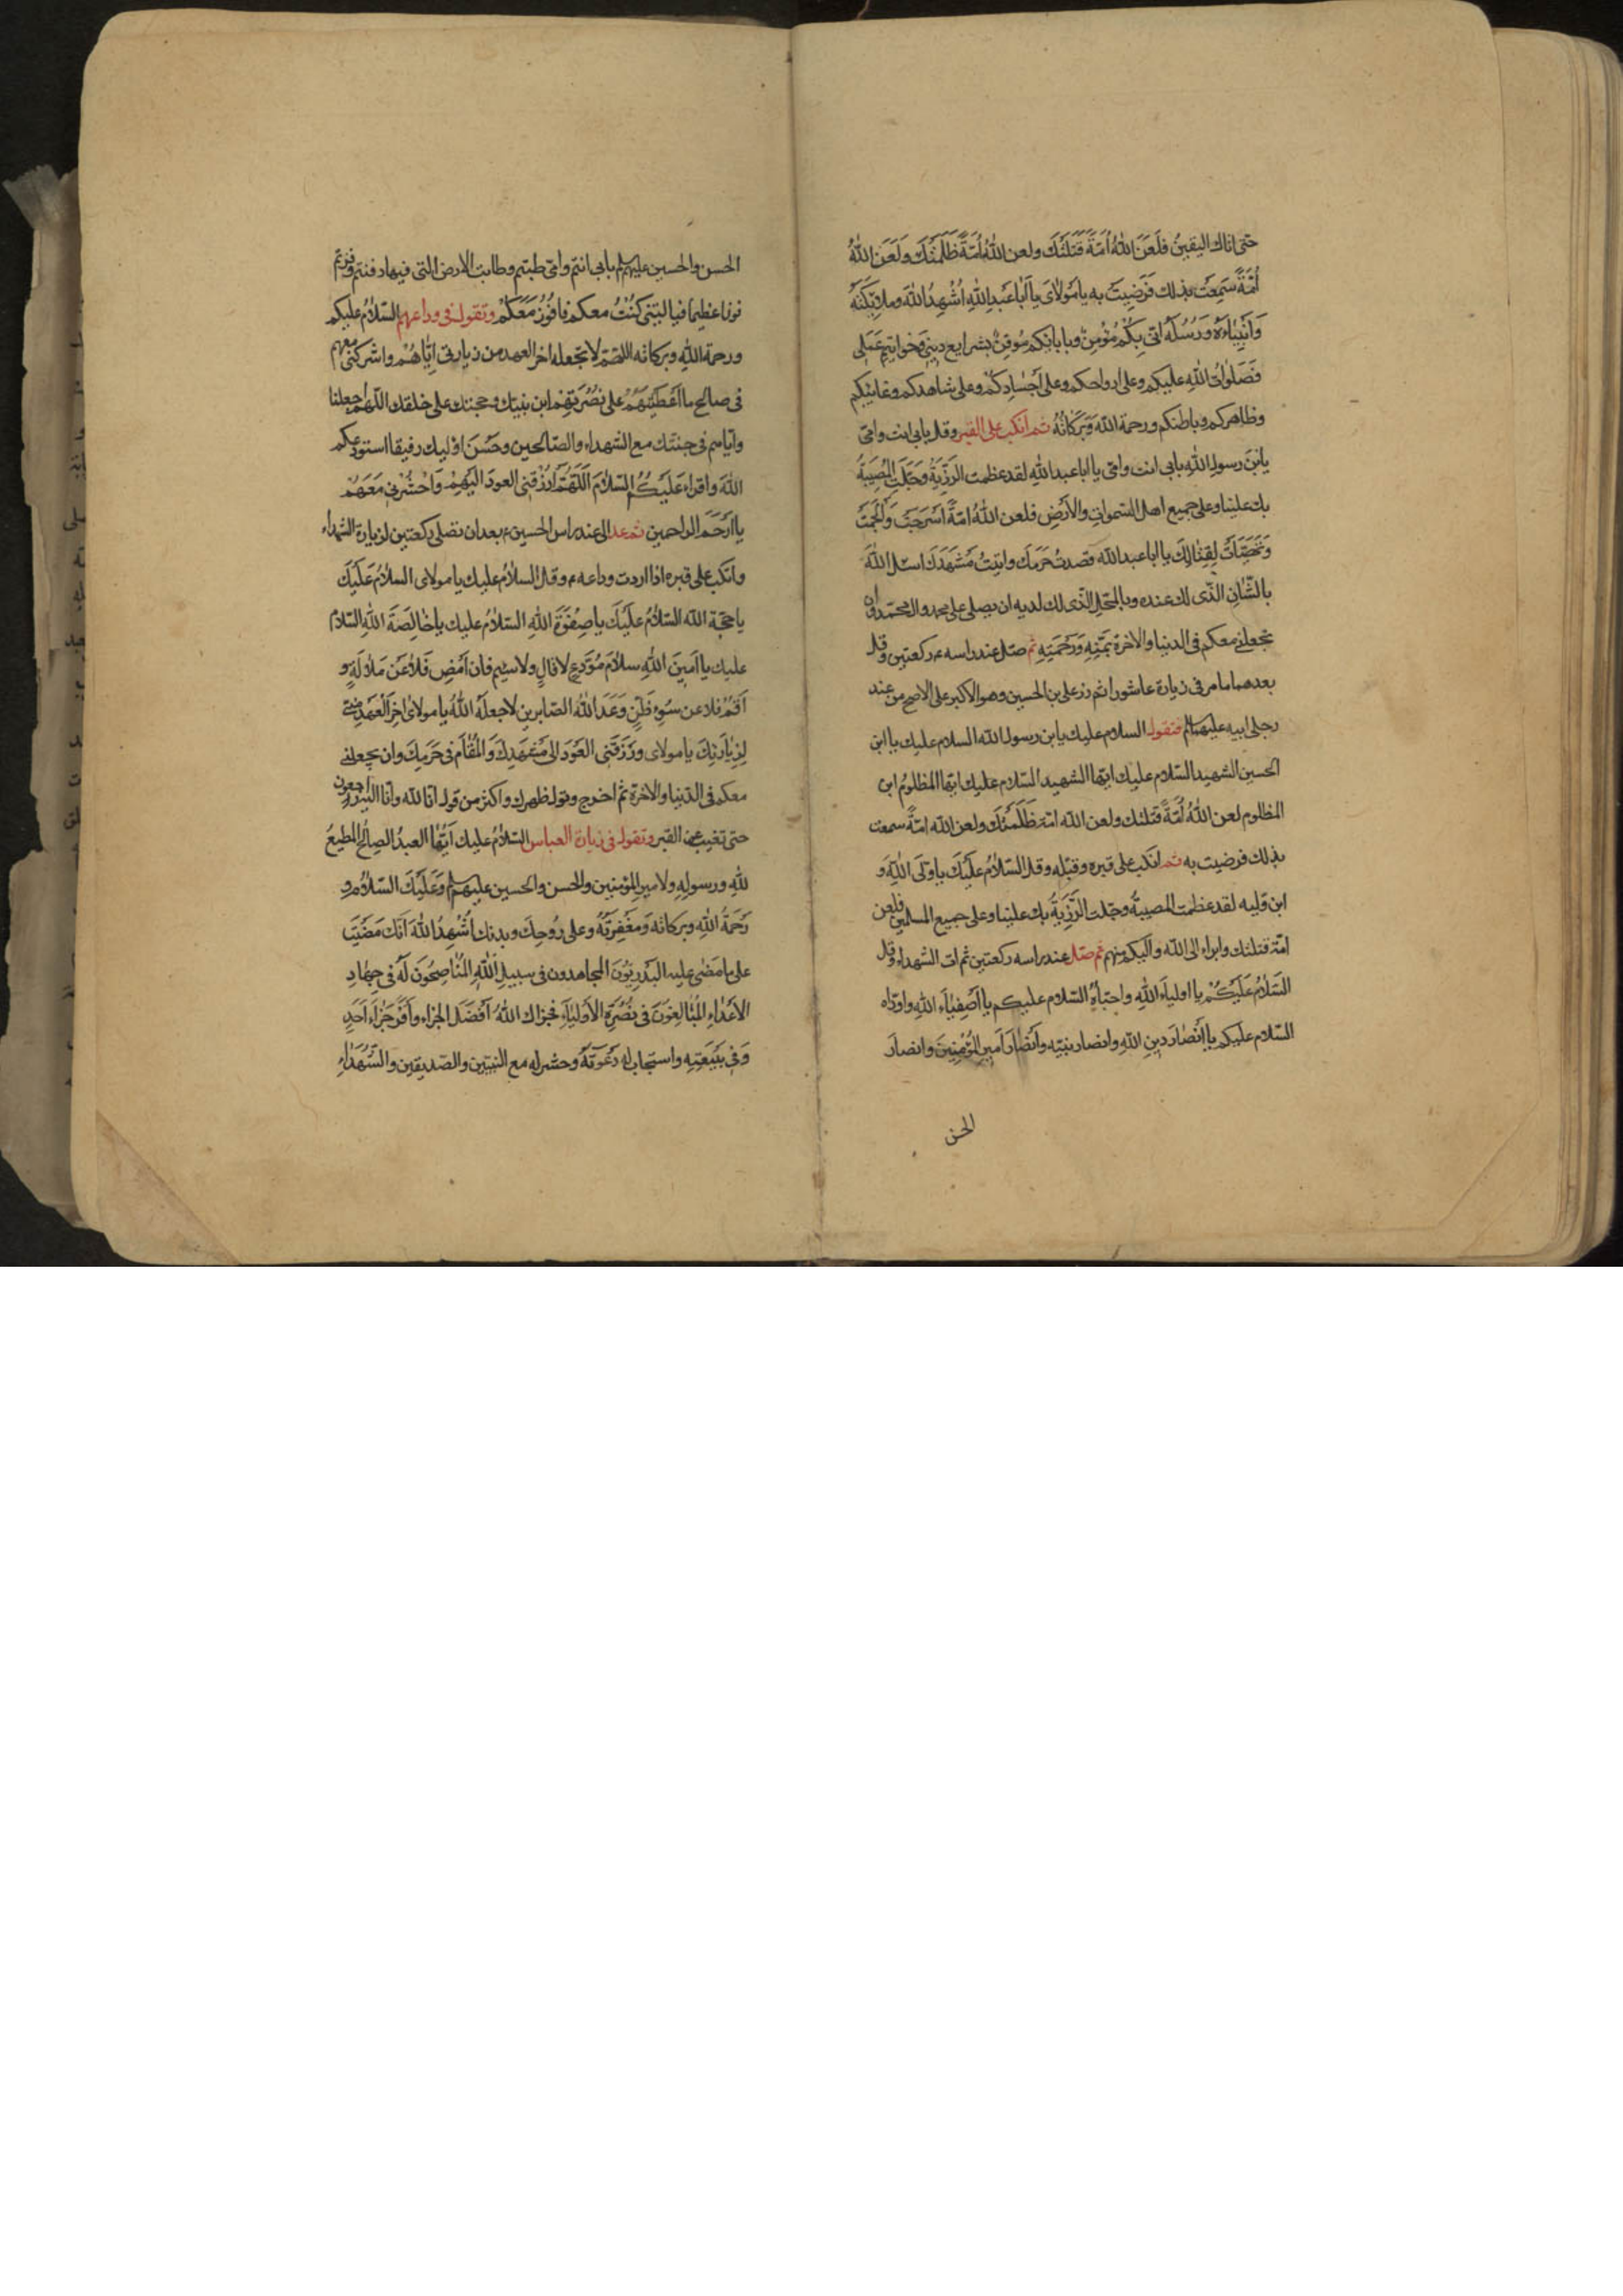 حتى اتاك اليقين فلَعَنَ اللهُ اُمَّةً قَتَلَتْكَ ولعن اللهُ اُمَّةً ظَلَمَتْكَ وَلَعَنَ اللهُ
اُمَّةً سَمِعَتْ بذلك فَرَضِيَتْ به يا مَوْلايَ يا اَبا عَبْدِ اللهِ اُشْهِدُ اللهَ وملائِكَتَهُ
وَاَنْبِياءَهُ وَرُسُلَهُ انّى بِكُمْ مُؤْمِنٌ وباِيابكم مُوقِنٌ بشرايع دينى وخواتيم عَمَلى
فَصَلَواتُ اللهِ عليكم وعلى ارواحكم وعلى اَجْسادِكُمْ وعلى شاهدكم وغائبكم
وظاهركم وباطنكم ورحمة اللّه وَبَرَكاتُهُ ثم انكب على القبر وقل بابى انت وامّى
يابْنَ رسولِ اللهِ بابى انت وامّى يا ابا عبد اللهِ لقد عظمت الرَّزِيَّةُ وَجَلَّتِ المُصيبَةُ
بك علينا وعلى جميع اهل السّموات والأَرْضِ فلعن اللهُ امّةً اَسْرَجَتْ وَاَلْجَمَتْ
وَتَهَيَّأَتْ لِقِتالِكَ يا ابا عبد اللّه قصدتُ حَرَمَكَ واتيتُ مَشْهَدَكَ اسئل اللهَ
بالشّانِ الّذى لك عنده وبالمحَلِّ الّذى لك لديه ان يصلى على محمد وال محمّد وان
يجعلنى معكم فى الدنيا والاخرة بمَنِّهِ وَرَحْمَتِهِ ثم صلّ عند راسه ع ركعتين وقل
بعدهما ما مر فى زيارة عاشورا ثم زر على بن الحسين وهو الاكبر على الاصح من عند
رجلى ابيه عليهما السلام فتقول السلام عليك يابن رسول اللّه السلام عليك يا ابن
الحسين الشهيد السّلام عليك ايّها الشهيد السّلام عليك ايّها المظلومُ ابن
المظلوم لعن اللهُ اُمَّةً قتلتك ولعن اللّه امّة ظَلَمَتْكَ ولعن اللّه امّةً سمعت
بذلك فرضيت به ثم انكب على قبره وقبّله وقل السّلامُ عَلَيْكَ يا وَلىَّ اللهِ وَ
ابن وليه لقد عظمت المصيبةُ وجلّت الرَّزِيَّةُ بك علينا وعلى جميع المسلمين فلعن
امّة قتلتك وابراء الى اللّه واليكم منهم ثم صلّ عند راسه ركعتين ثم ات الشهداء وقل
السَلامُ عَلَيْكُمْ يا اولياءَ اللهِ واحبّاءَهُ السّلام عليكم يا اَصْفِياءَ اللهِ واودّاه
السّلام عليكم يا اَنْصارَ دينِ اللهِ وانصار نبيّه وَاَنْصارَ اَميرِ المُؤْمِنينَ وانصارَ
الحسن
الحسن والحسين عليهم السلام بابى انتم وامّى طبتم وطابت الارض الّتى فيها دفنتم وفزتم
فوزا عظيما فيا ليتنى كُنْتُ معكم فَاَفُوزَ مَعَكُمْ وتقول فى وداعهم السّلامُ عليكم
ورحمة اللهِ وبركاته اللهّم لا تجعله اخر العهد من زيارتى ايّاهُمْ واشركنى معهم
فى صالح ما اَعْطَيْتَهُمْ على نُصْرَتِهِمْ ابن نبيّك وحجتك على خلقك اللّهم اجعلنا
وايّاهم فى جنتك مع الشهداء والصّالحين وحَسُنَ اولئِك رفيقا استودعكم
اللهَ واقراء عَلَيْكُمُ السّلامَ اَللّهُمَّ ارْزُقْنِى العودَ اِلَيْهِمْ وَاحْشُرْنى مَعَهُمْ
يا اَرْحَمَ الراحمين ثم عد الى عند راس الحسين ع بعد ان تصلى ركعتين لزيارة الشهداء
وانكب على قبره اذا اردت وداعه ع وقل السلامُ عليك يا مولاى السلامُ عَلَيْكَ
يا حجّة اللّه السّلامُ عَلَيْكَ يا صِفْوَةَ اللهِ السّلامُ عليك يا خالِصَةَ اللهِ السّلامُ
عليك يا اَمينَ اللهِ سلامَ مُوَدِّعٍ لا قالٍ ولا سئم فان اَمْضِ فَلا عَنْ مَلالَةٍ وَ
اَقُمْ فلا عن سُوءِ ظَنٍّ وَعَدَ اللهُ الصّابرين لا جعله اللهُ يا مولاىَ اخِرَ الْعَهْدِ منّى
لِزِيارَتِكَ يا مولاى ورَزَقَنِى العَوْدَ اِلى مَشْهَدِكَ وَالمُقامَ فى حَرَمِكَ وان يجعلنى
معكم فى الدّنيا والاخرة ثم اخرج وتول ظهرك واكثر من قول انّا للّه وانّا اليه راجعون
حتى تغيب عن القبر وتقول فى زيارة العباس السّلامُ عليك اَيُّها العبدُ الصالحُ المطيعُ
للهِ ورسولِهِ ولامير المؤمنين والحسن والحسين عليهم السلام وَعَلَيْكَ السّلامُ وَ
رَحْمَةُ اللهِ وبركاتُه وَمَغْفِرَتُهُ وعلى رُوحِكَ وبدنك اُشْهِدُ اللهَ اَنَّكَ مَضَيْتَ
على ما مَضى عليه البَدْرِيُّونَ المجاهدون فى سبيلِ اللهِ المُناصِحُونَ لَهُ فى جِهادِ
الاَعْداءِ المُبالِغُونَ فى نُصْرَةِ الاَوْلِياءِ فجزاك اللهُ اَفْضَلَ الجزاءِ وَاَوْفَرَ جَزاءِ اَحَدٍ
وَفى بِبَيْعَتِهِ واستجاب له دَعْوَتَهُ وحشره مع النّبيّين والصّديقين والشُّهَداءِ